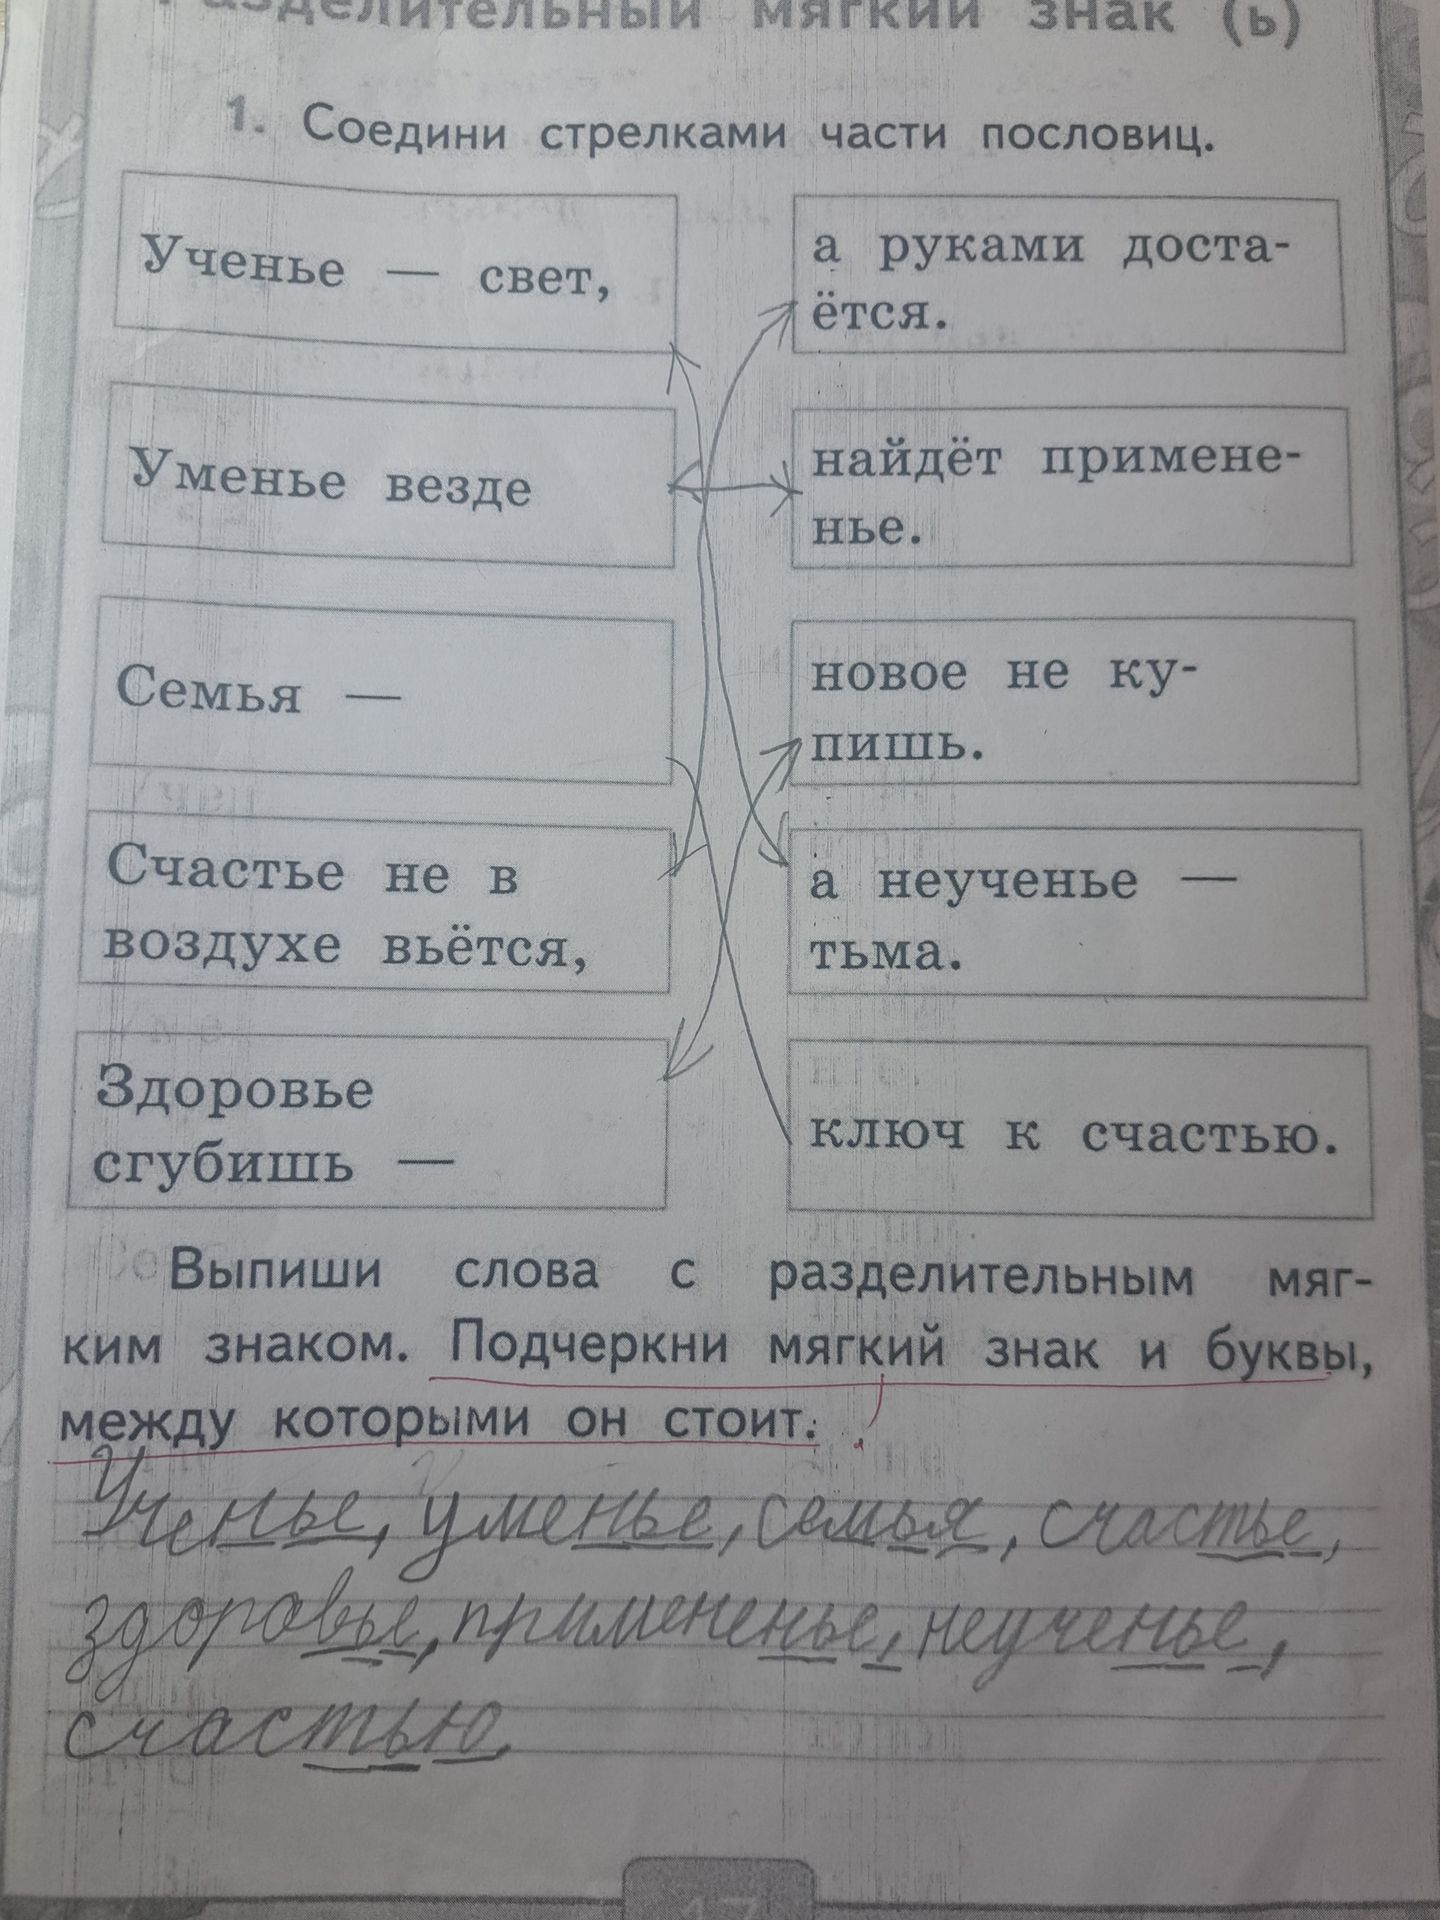 Разделительный мягкий знак (ь)
1. Соедини стрелками части пословиц.
Ученье — свет,
а руками доста-
ётся.
Уменье везде
найдёт примене-
нье.
Семья —
новое не ку-
пишь.
Счастье не в
воздухе вьётся,
а неученье —
тьма.
Здоровье
сгубишь —
ключ к счастью.
Выпиши слова с разделительным мяг-
ким знаком. Подчеркни мягкий знак и буквы,
между которыми он стоит.
Ученье, уменье, семья, счастье,
здоровье, примененье, неученье,
счастью.
17